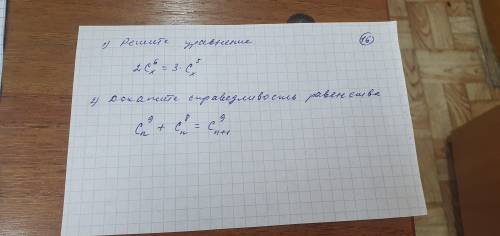 1) Решите уравнение
16
2C_x^6 = 3·C_x^5
2) Докажите справедливость равенства
C_n^9 + C_n^8 = C_{n+1}^9